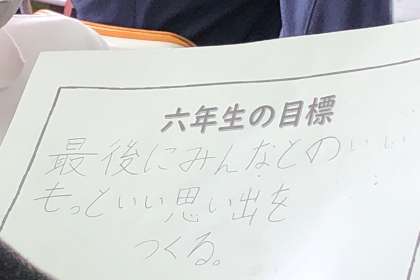 六年生の目標
最後にみんなとのいい
もっといい思い出を
つくる。